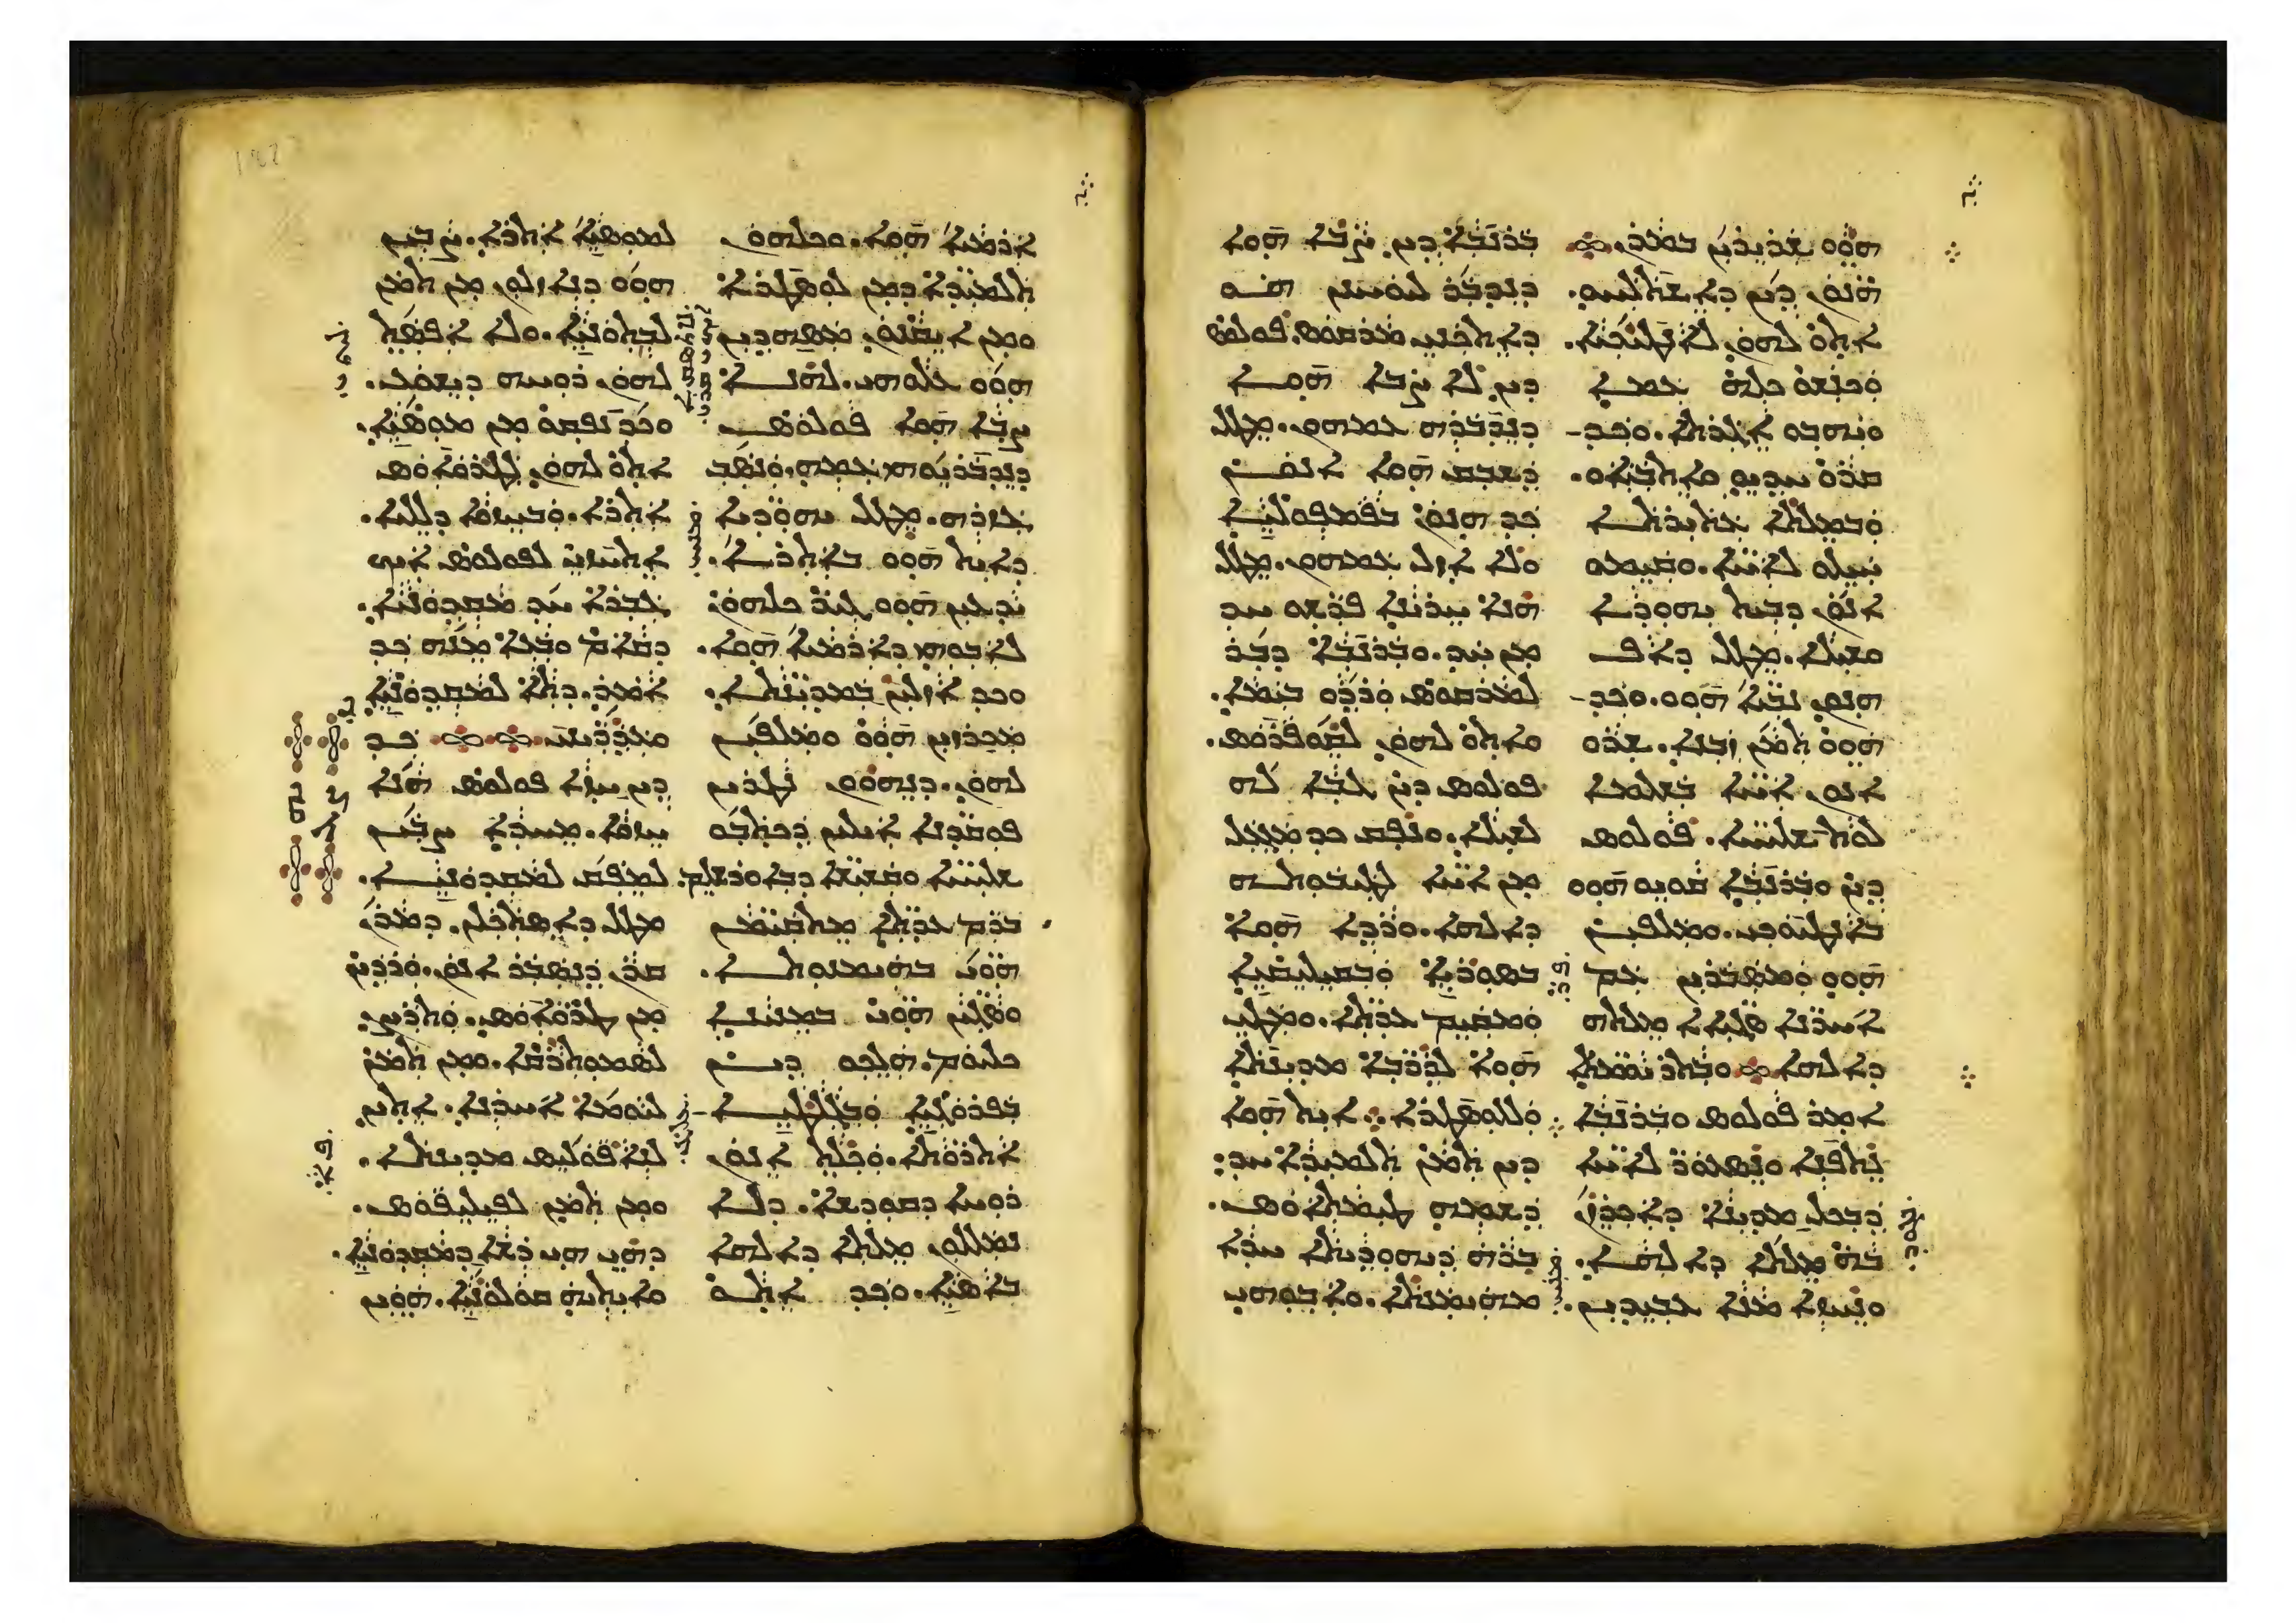 ܗܘܘ ܫܪܝܪܝܢ ܒܡܪܢ܀
ܗܢܘܢ ܕܝܢ ܕܐܫܬܠܚܘ.
ܐܬܘ ܠܗܘܢ ܠܐܢܛܝܘܟܝܐ.
ܘܟܢܫܘ ܟܠܗ ܥܡܐ
ܘܝܗܒܘ ܐܓܪܬܐ. ܘܟܕ
ܩܪܘ ܚܕܝܘ ܘܐܬܒܝܐܘ.
ܘܒܡܠܬܐ ܥܬܝܪܬܐ
ܚܝܠܘ ܠܐܚܐ. ܘܩܝܡܘ
ܐܢܘܢ ܕܒܝܬ ܝܗܘܕܐ
ܘܫܝܠܐ. ܡܛܠ ܕܐܦ
ܗܢܘܢ ܢܒܝܐ ܗܘܘ. ܘܟܕ
ܗܘܘ ܬܡܢ ܙܒܢܐ. ܫܪܘ
ܐܢܘܢ ܐܚܐ ܒܫܠܡܐ
ܠܘܬ ܫܠܝܚܐ. ܦܘܠܘܣ
ܕܝܢ ܘܒܪܢܒܐ ܩܘܝܘ ܗܘܘ
ܒܐܢܛܝܘܟܝ. ܘܡܠܦܝܢ
ܗܘܘ ܘܡܣܒܪܝܢ ܥܡ
ܐܚܪܢܐ ܣܓܝܐܐ ܡܠܬܗ
ܕܐܠܗܐ܀ ܘܒܬܪ ܝܘܡܬܐ
ܐܡܪ ܦܘܠܘܣ ܠܒܪܢܒܐ
ܢܬܦܢܐ ܘܢܣܥܘܪ ܠܐܚܐ
ܕܒܟܠ ܡܕܝܢܐ ܕܐܟܪܙܢ
ܒܗ ܡܠܬܐ ܕܐܠܗܐ.
ܘܢܚܙܐ ܡܢܐ ܥܒܝܕܝܢ.
ܒܪܢܒܐ ܕܝܢ ܨܒܐ ܗܘܐ
ܕܢܕܒܪ ܠܝܘܚܢܢ ܗܘ
ܕܐܬܟܢܝ ܡܪܩܘܣ. ܦܘܠܘܣ
ܕܝܢ ܠܐ ܨܒܐ ܗܘܐ
ܕܢܕܒܪܗ ܥܡܗܘܢ. ܡܛܠ
ܕܫܒܩ ܗܘܐ ܐܢܘܢ
ܟܕ ܗܢܘܢ ܒܦܡܦܘܠܝܐ
ܘܠܐ ܐܙܠ ܥܡܗܘܢ. ܡܛܠ
ܗܢܐ ܚܪܝܢܐ ܦܪܫܘ ܚܕ
ܡܢ ܚܕ. ܘܒܪܢܒܐ ܕܒܪ
ܠܡܪܩܘܣ ܘܪܕܘ ܒܝܡܐ.
ܘܐܬܘ ܠܗܘܢ ܠܩܘܦܪܘܣ.
ܦܘܠܘܣ ܕܝܢ ܓܒܐ ܠܗ
ܠܫܝܠܐ. ܘܢܦܩ ܟܕ ܡܓܥܠ
ܡܢ ܐܚܐ ܠܛܝܒܘܬܗ
ܕܐܠܗܐ. ܘܪܕܐ ܗܘܐ
ܒܣܘܪܝܐ ܘܒܩܝܠܝܩܝܐ
ܘܡܩܝܡ ܥܕܬܐ. ܘܡܛܝ
ܗܘܐ ܠܕܪܒܐ ܡܕܝܢܬܐ
ܘܠܠܘܣܛܪܐ. ܐܝܬ ܗܘܐ
ܕܝܢ ܬܡܢ ܬܠܡܝܕܐ ܚܕ
ܕܫܡܗ ܛܝܡܬܐܘܣ.
ܒܪܗ ܕܝܗܘܕܝܬܐ ܚܕܐ
ܡܗܝܡܢܬܐ. ܘܐܒܘܗܝ
ܐܪܡܝܐ ܗܘܐ. ܘܟܠܗܘܢ
ܬܠܡܝܕܐ ܕܡܢ ܠܘܣܛܪܐ
ܘܡܢ ܐܝܩܢܘܢ ܡܣܗܕܝܢ
ܗܘܘ ܥܠܘܗܝ. ܠܗܢܐ
ܨܒܐ ܗܘܐ ܦܘܠܘܣ
ܕܢܕܒܪܝܘܗܝ ܥܡܗ. ܘܢܣܒ
ܓܙܪܗ. ܡܛܠ ܝܗܘܕܝܐ
ܕܐܝܬ ܗܘܘ ܒܐܬܪܐ.
ܝܕܥܝܢ ܗܘܘ ܓܝܪ ܟܠܗܘܢ
ܠܐܒܘܗܝ ܕܐܪܡܝܐ ܗܘܐ.
ܘܟܕ ܐܙܠܝܢ ܒܡܕܝܢܬܐ.
ܡܟܪܙܝܢ ܗܘܘ ܘܡܠܦܝܢ
ܠܗܘܢ. ܕܢܗܘܘܢ ܢܛܪܝܢ
ܦܘܩܕܢܐ ܐܝܠܝܢ ܕܟܬܒܘ
ܫܠܝܚܐ ܘܩܫܝܫܐ ܕܒܐܘܪܫܠܡ.
ܒܪܡ ܥܕܬܐ ܡܬܩܝܡܢ
ܗܘܝ ܒܗܝܡܢܘܬܐ.
ܘܣܓܝܢ ܗܘܝ ܒܡܢܝܢܐ
ܟܠܝܘܡ. ܗܠܟܘ ܕܝܢ
ܒܦܪܘܓܝܐ ܘܒܓܠܛܝܐ
ܐܬܪܘܬܐ. ܘܟܠܬ ܐܢܘܢ
ܪܘܚܐ ܕܩܘܕܫܐ. ܕܠܐ
ܢܡܠܠܘܢ ܡܠܬܐ ܕܐܠܗܐ
ܒܐܣܝܐ. ܘܟܕ ܐܬܘ
ܠܡܘܣܝܐ ܐܬܪܐ. ܨܒܝܢ
ܗܘܘ ܕܢܐܙܠܘܢ ܡܢ ܬܡܢ
ܠܒܬܘܢܝܐ. ܘܠܐ ܐܦܣܬ
ܠܗܘܢ ܪܘܚܗ ܕܝܫܘܥ.
ܘܟܕ ܢܦܩܘ ܡܢ ܡܘܣܝܐ.
ܐܬܘ ܠܗܘܢ ܠܛܪܘܐܘܣ
ܐܬܪܐ. ܘܒܚܙܘܐ ܕܠܠܝܐ.
ܐܬܚܙܝ ܠܦܘܠܘܣ ܐܝܟ
ܓܒܪܐ ܚܕ ܡܩܕܘܢܝܐ.
ܕܩܐܡ ܘܒܥܐ ܡܢܗ ܟܕ
ܐܡܪ. ܕܬܐ ܠܡܩܕܘܢܝܐ
ܘܥܕܪܝܢܝ܀ ܟܕ
ܕܝܢ ܚܙܐ ܦܘܠܘܣ ܗܢܐ
ܚܙܘܐ. ܡܚܕܐ ܨܒܝܢ
ܠܡܦܩ ܠܡܩܕܘܢܝܐ.
ܡܛܠ ܕܐܣܬܟܠܢ. ܕܡܪܢ
ܩܪܢ ܕܢܣܒܪ ܐܢܘܢ. ܘܪܕܝܢ
ܡܢ ܛܪܘܐܘܣ. ܘܬܪܨܢ
ܠܣܡܘܬܪܩܐ. ܘܡܢ ܬܡܢ
ܠܝܘܡܐ ܐܚܪܢܐ. ܐܬܝܢ
ܠܢܐܦܘܠܝܣ ܡܕܝܢܬܐ.
ܘܡܢ ܬܡܢ ܠܦܝܠܝܦܘܣ.
ܕܗܝ ܗܝ ܪܫܐ ܕܡܩܕܘܢܝܐ.
ܘܐܝܬܝܗ ܩܘܠܘܢܝܐ. ܗܘܝܢ